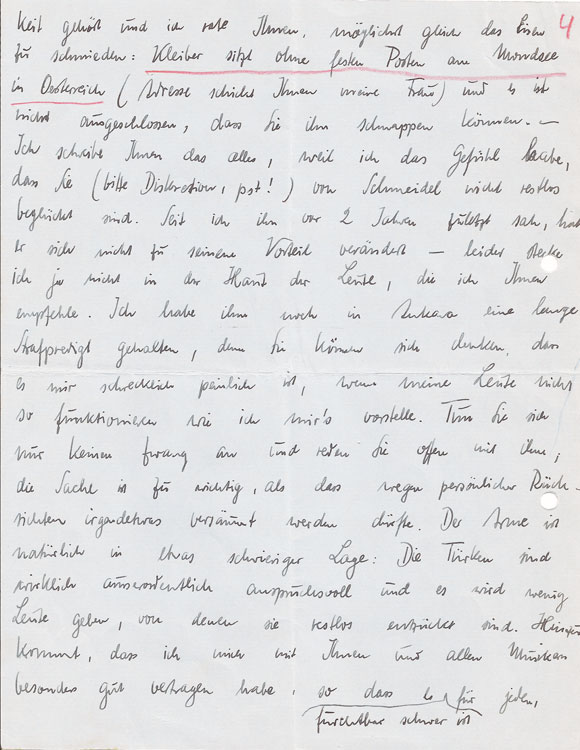 4
keit gehört und ich rate Ihnen, möglichst gleich das Eisen
zu schmieden: Kleiber sitzt ohne festen Posten am Mondsee
in Oesterreich (Adresse schickt Ihnen meine Frau) und es ist
nicht ausgeschlossen, dass Sie ihn schnappen können. —
Ich schreibe Ihnen das alles, weil ich das Gefühl habe,
dass Sie (bitte Diskretion, pst!) von Schmeidel nicht restlos
beglückt sind. Seit ich ihn vor 2 Jahren zuletzt sah, hat
er sich nicht zu seinem Vorteil verändert — leider stecke
ich ja nicht in der Haut der Leute, die ich Ihnen
empfehle. Ich habe ihm noch in Ankara eine lange
Strafpredigt gehalten, denn Sie können sich denken, dass
es mir schrecklich peinlich ist, wenn meine Leute nicht
so funktionieren wie ich mir's vorstelle. Tun Sie sich
nur keinen Zwang an und reden Sie offen mit ihm,
die Sache ist zu wichtig, als dass wegen persönlicher Rück-
sichten irgendetwas versäumt werden dürfte. Der Arme ist
natürlich in etwas schwieriger Lage: Die Türken sind
wirklich ausserordentlich anspruchsvoll und es wird wenig
Leute geben, von denen sie restlos entzückt sind. Hinzu
kommt, dass ich mich mit Ihnen und allen Musikern
besonders gut vertragen habe, so dass es für jeden,
furchtbar schwer ist